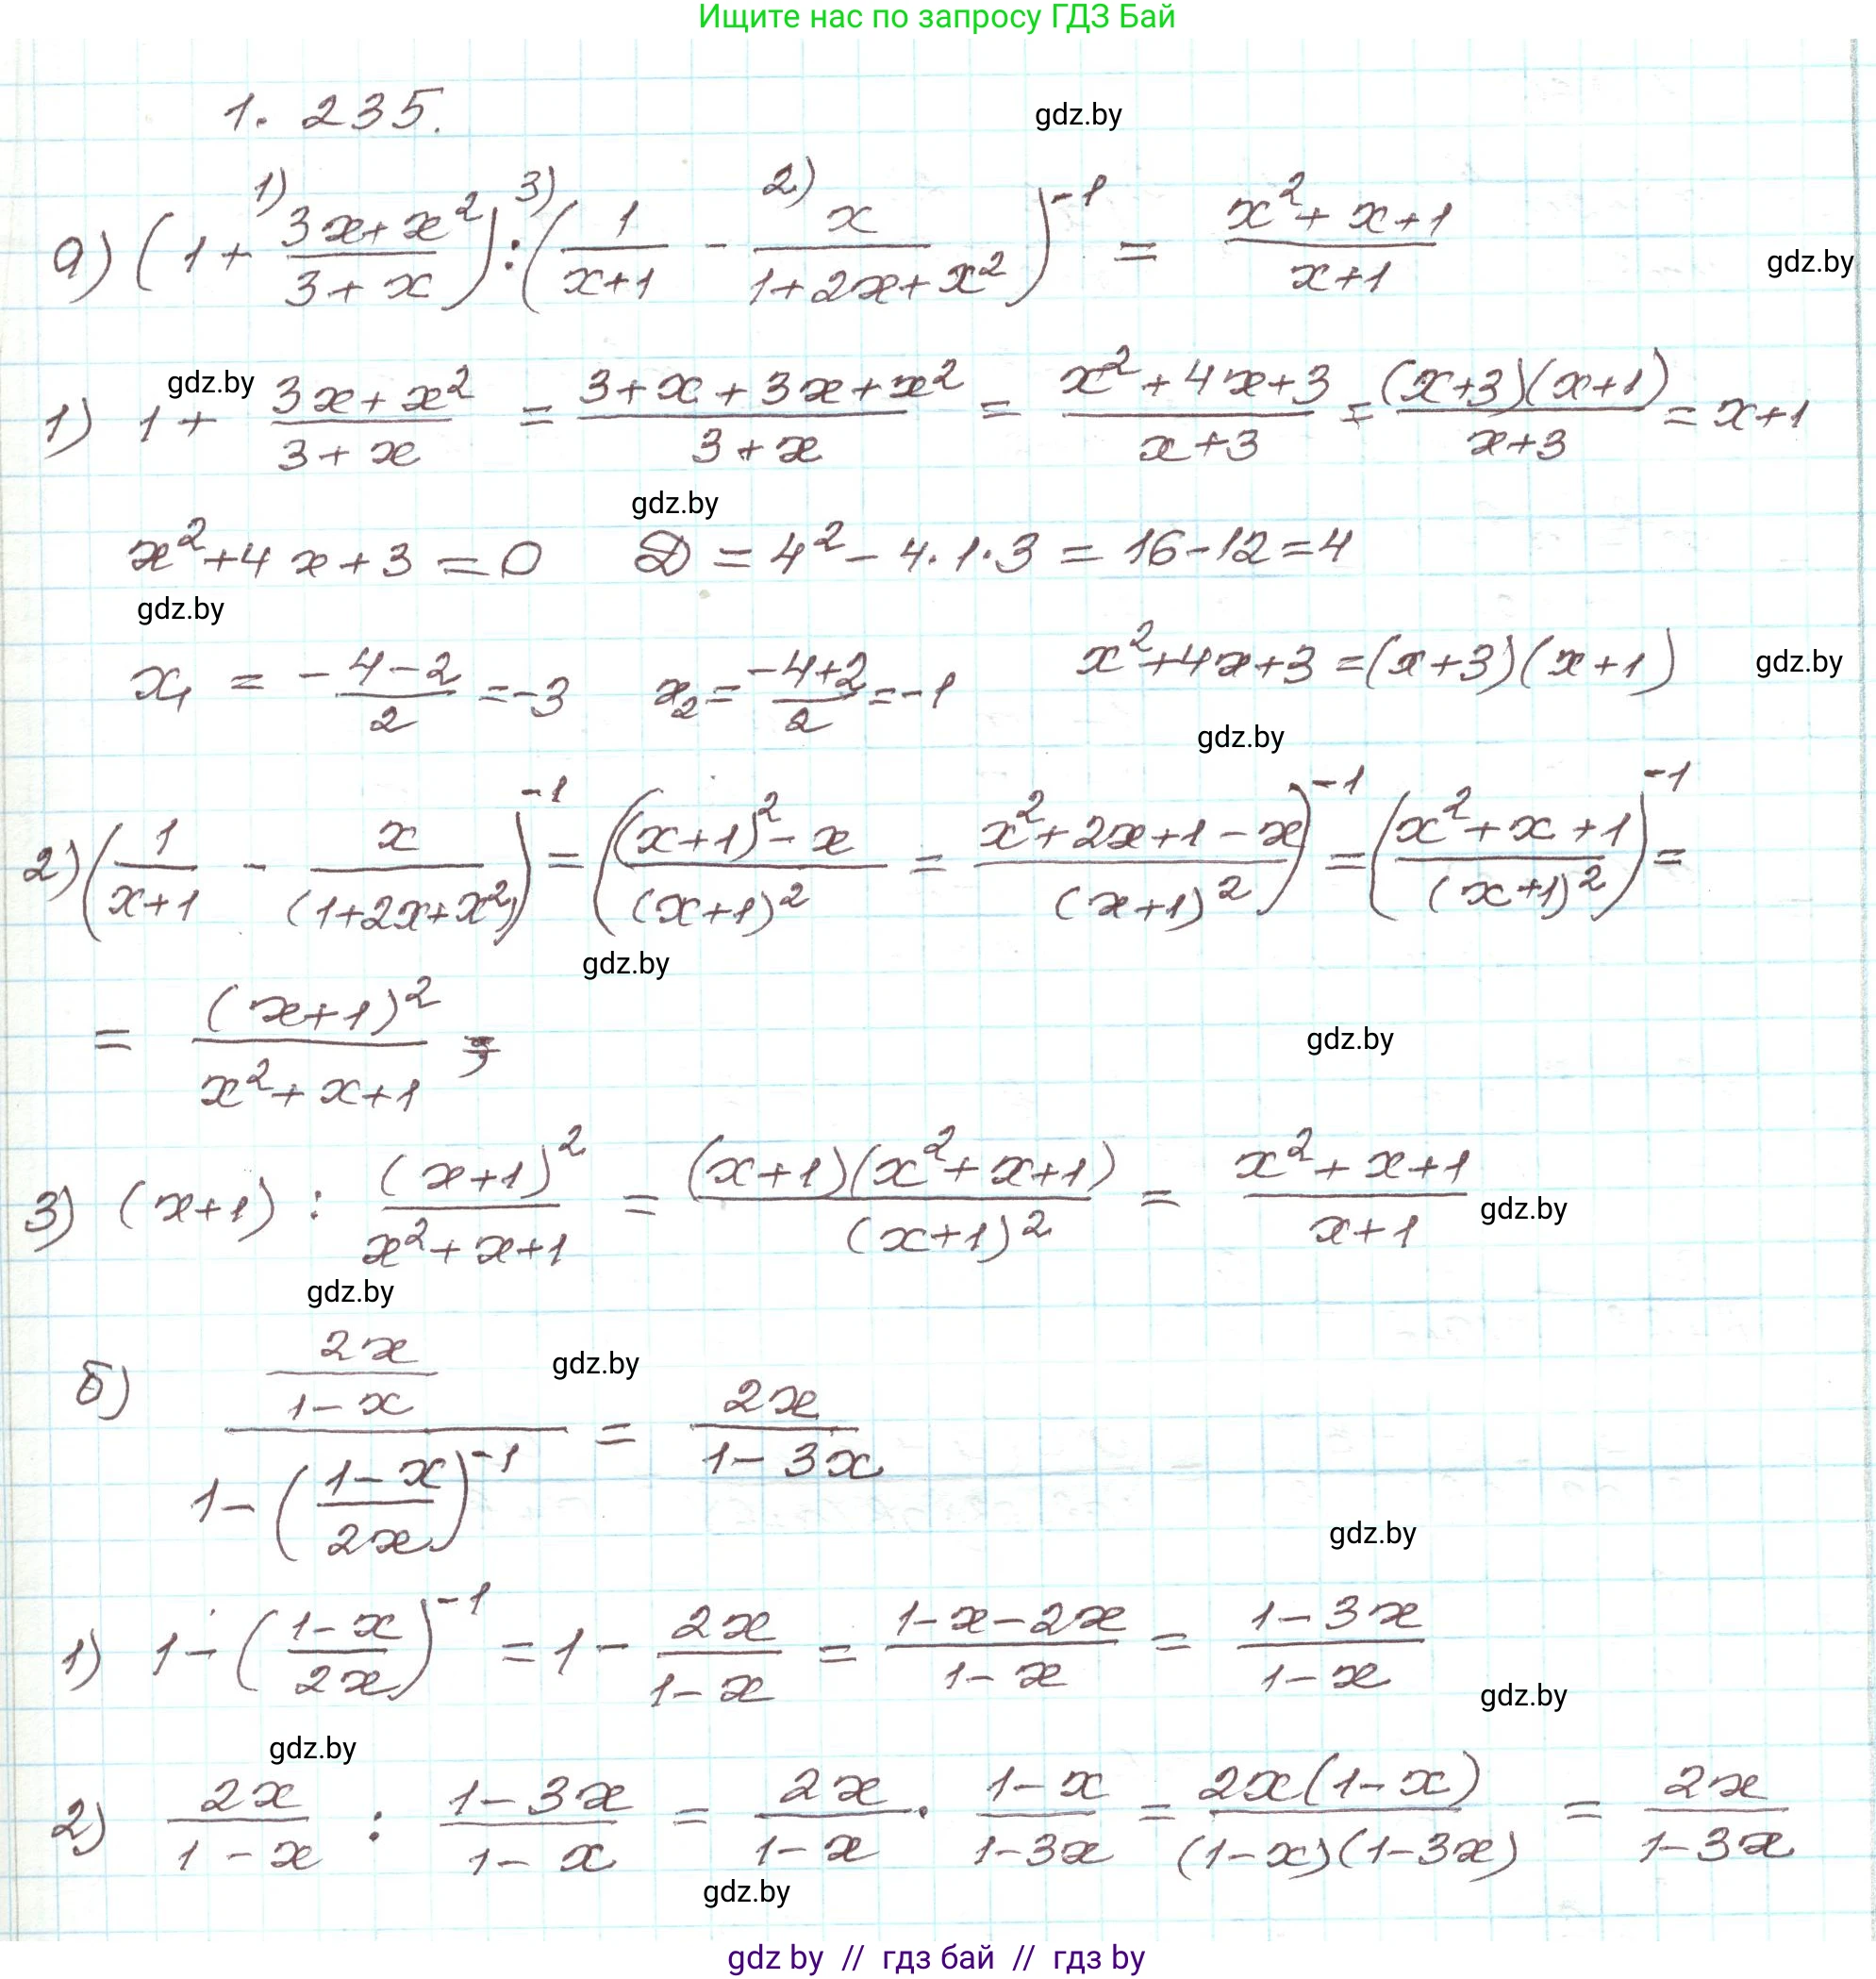 Ищите нас по запросу ГДЗ Бай
1. 235.
gdz.by
а) (1 + (3x+x²)/(3+x)) : (1/(x+1) - x/(1+2x+x²))⁻¹ = (x²+x+1)/(x+1)
1) 3) 2)
gdz.by
gdz.by
1) 1 + (3x+x²)/(3+x) = (3+x+3x+x²)/(3+x) = (x²+4x+3)/(x+3) = ((x+3)(x+1))/(x+3) = x+1
gdz.by
x²+4x+3=0 D = 4² - 4·1·3 = 16-12=4
gdz.by
x₁ = -(4-2)/2 = -3 x₂ = (-4+2)/2 = -1 x²+4x+3=(x+3)(x+1)
gdz.by
gdz.by
2) (1/(x+1) - x/(1+2x+x²))⁻¹ = (((x+1)²-x)/(x+1)² = (x²+2x+1-x)/(x+1)²)⁻¹ = ((x²+x+1)/(x+1)²)⁻¹ =
gdz.by
= (x+1)²/(x²+x+1) ;
gdz.by
3) (x+1) : (x+1)²/(x²+x+1) = ((x+1)(x²+x+1))/(x+1)² = (x²+x+1)/(x+1)
gdz.by
gdz.by
б) (2x/(1-x))/(1-((1-x)/2x)⁻¹) = 2x/(1-3x)
gdz.by
gdz.by
1) 1-((1-x)/2x)⁻¹ = 1 - 2x/(1-x) = (1-x-2x)/(1-x) = (1-3x)/(1-x)
gdz.by
gdz.by
2) 2x/(1-x) : (1-3x)/(1-x) = 2x/(1-x) · (1-x)/(1-3x) = (2x(1-x))/((1-x)(1-3x)) = 2x/(1-3x)
gdz.by
gdz by // гдз бай // гдз by